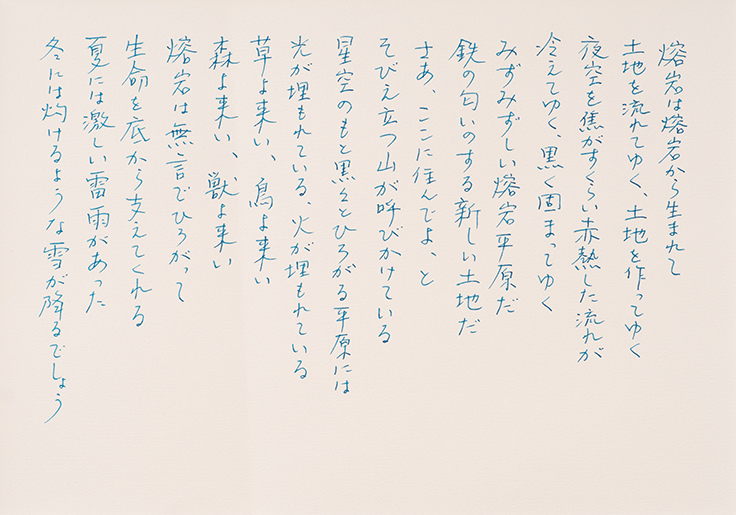 熔岩は熔岩から生まれて
土地を流れてゆく、土地を作ってゆく
夜空を焦がすくらい赤熱した流れが
冷えてゆく、黒く固まってゆく
みずみずしい熔岩平原だ
鉄の匂いのする新しい土地だ
さあ、ここに住んでよ、と
そびえ立つ山が呼びかけている
星空のもと黒々とひろがる平原には
光が埋もれている、火が埋もれている
草よ来い、鳥よ来い
森よ来い、獣よ来い
熔岩は無言でひろがって
生命を底から支えてくれる
夏には激しい雷雨があった
冬には灼けるような雪が降るでしょう